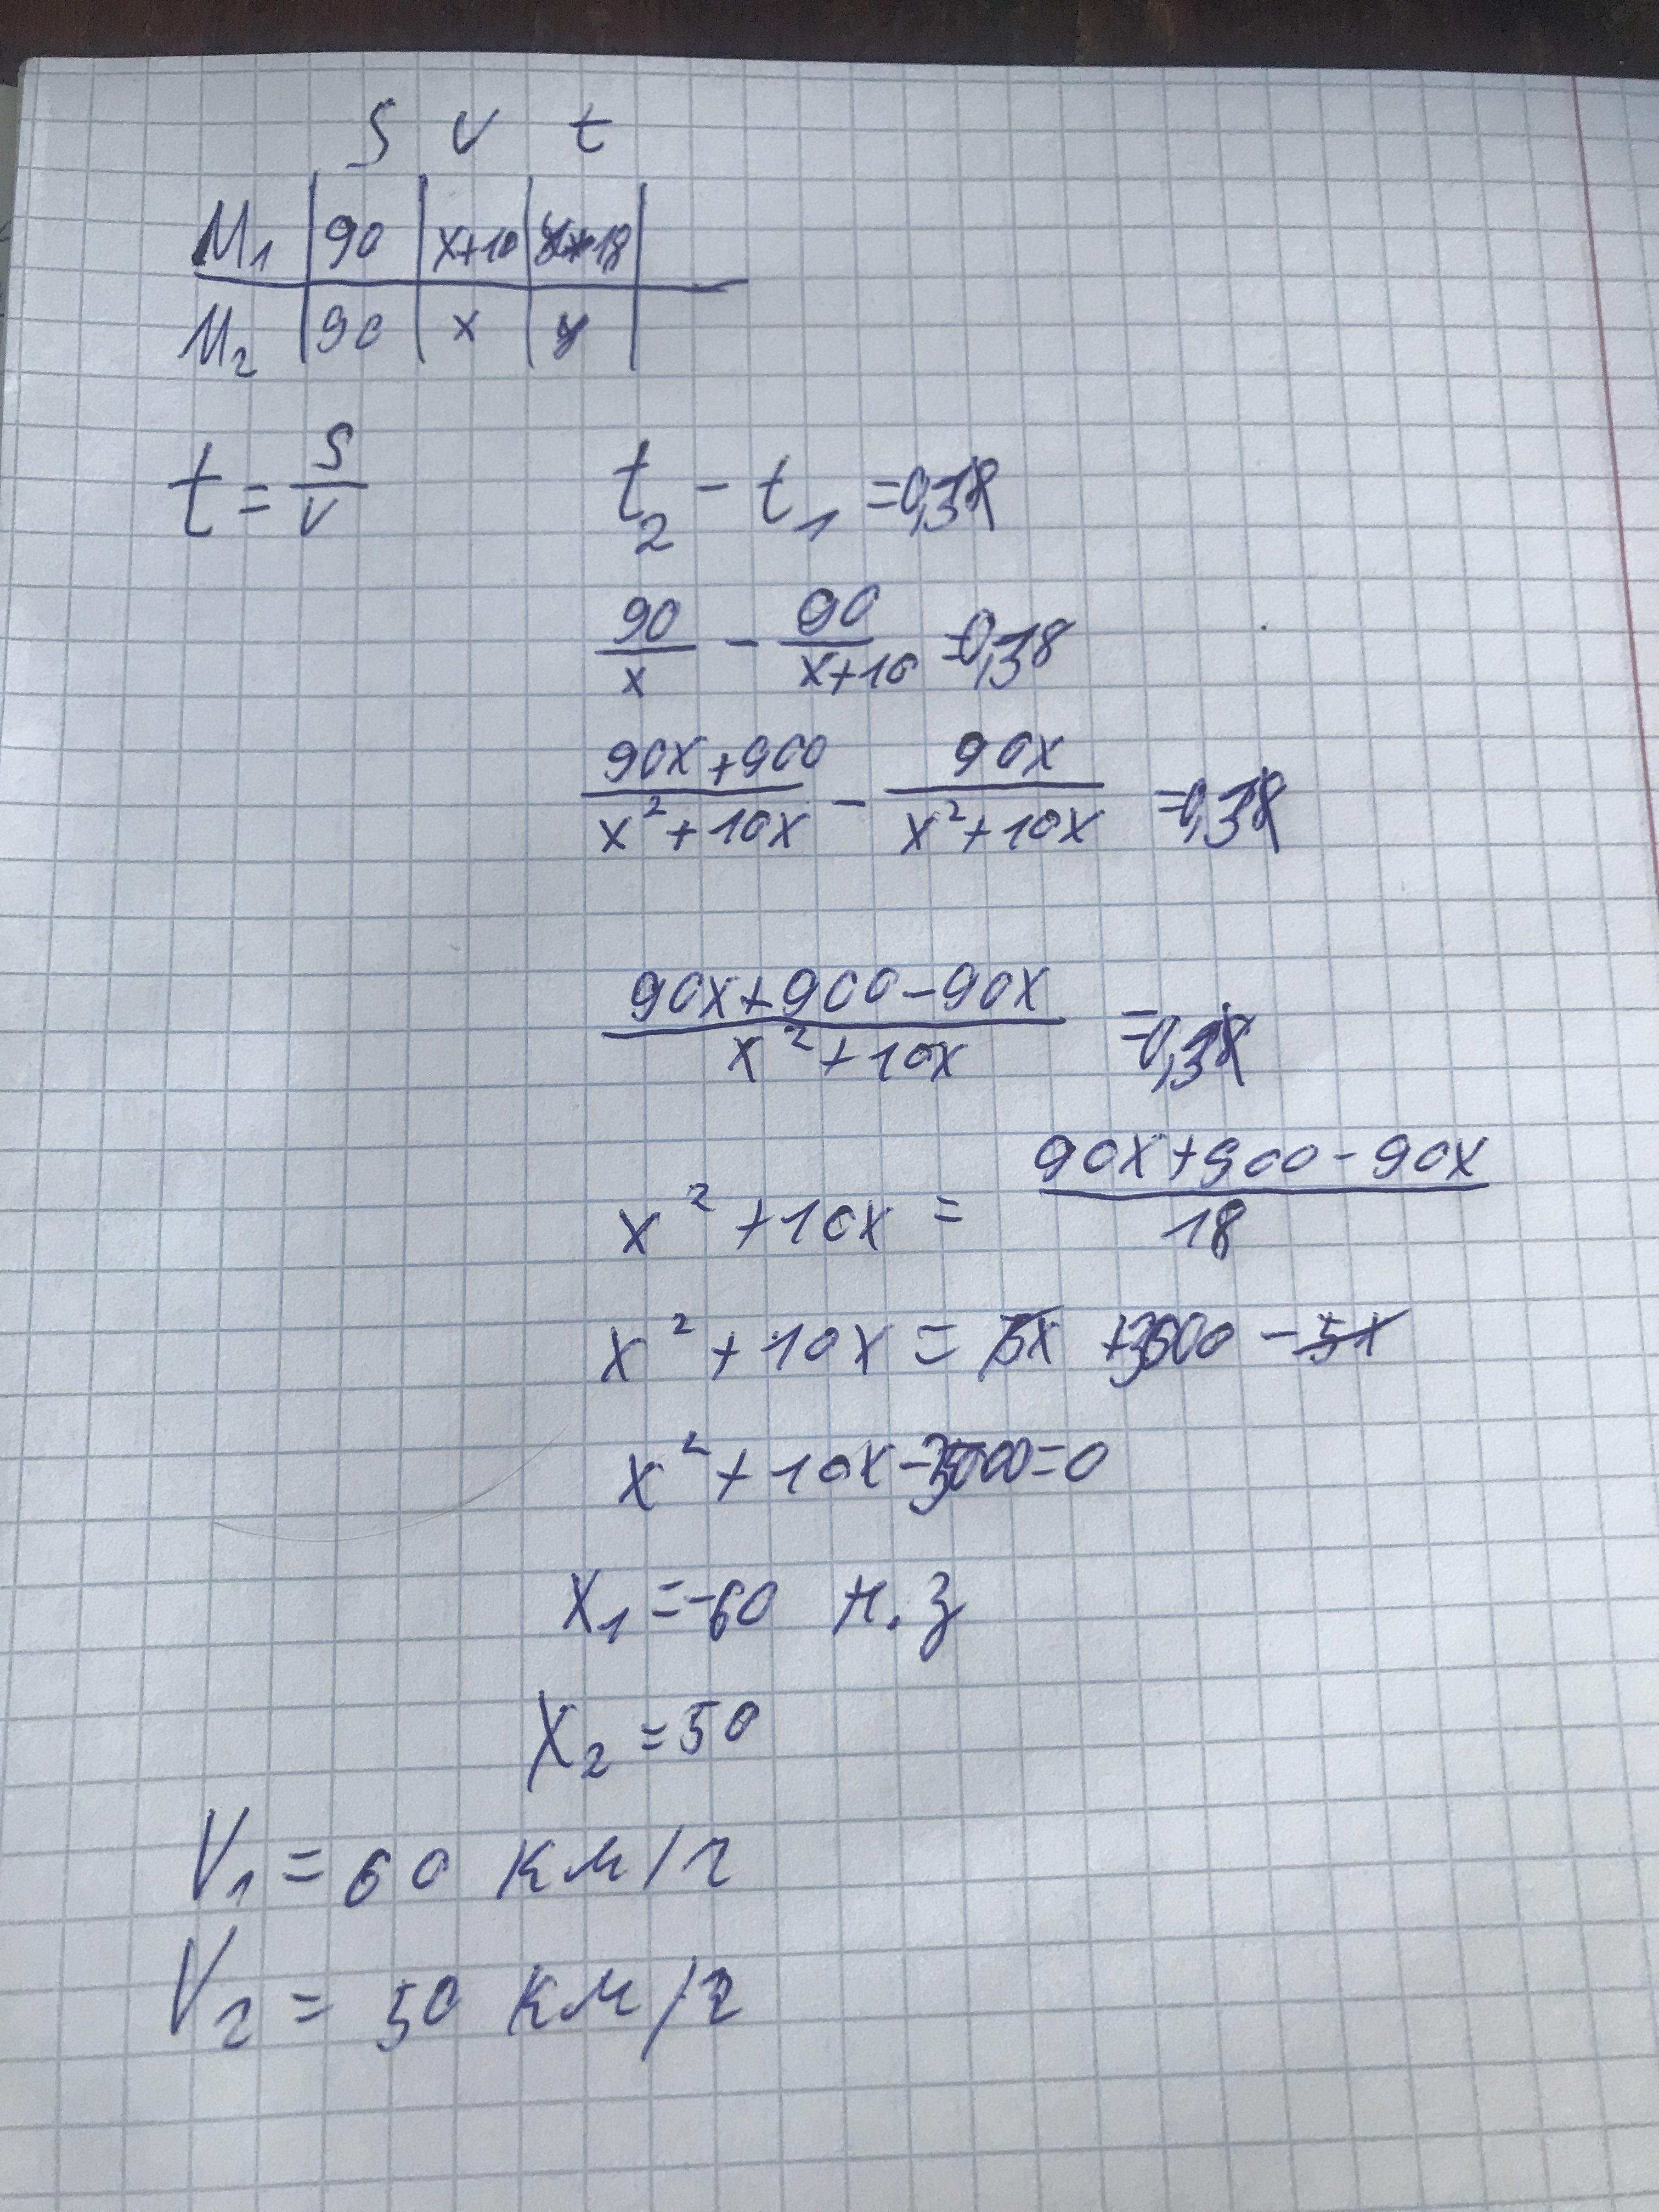 S V t
M₁ | 90 | x+10 |
M₂ | 90 | x | y
t = S/V t₂ - t₁ = 0,3
90/x - 90/(x+10) = 0,3
(90x+900)/(x²+10x) - 90x/(x²+10x) = 0,3
(90x+900-90x)/(x²+10x) = 0,3
x² + 10x = (90x+900-90x)/18
x² + 10x = 5x +3000 - 5x
x² + 10x - 3000 = 0
x₁ = -60 н.з
x₂ = 50
V₁ = 60 км/ч
V₂ = 50 км/ч